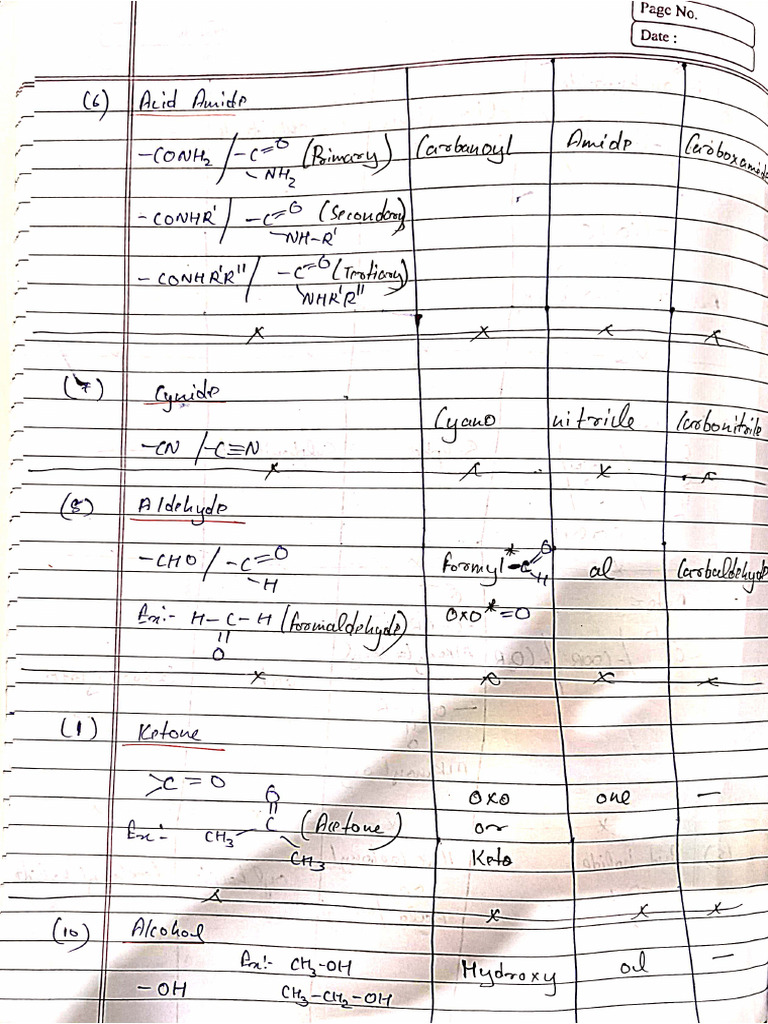 Page No.
Date :
(6) Acid Amide
-CONH₂ / -C=O (Primary) Carbanoyl Amide Carboxamide
-NH₂
-CONHR' / -C=O (Secondary)
-NH-R'
-CONHR'R" / -C=O (Tertiary)
NHR'R"
x x x x
(7) Cynide
Cyano nitricle Carbonitrile
-CN / -C≡N
x x x x
(8) Aldehyde
-CHO / -C=O Formyl* -C=O al Carbaldehyde
-H H
Ex:- H-C-H (Formaldehyde) oxo* =O
||
O
x x x x
(1) Ketone
>C=O oxo one —
O
||
Ex:- CH₃ C (Acetone) or x
CH₃ Keto
x x x x
(10) Alcohol
Ex:- CH₃-OH Hydroxy ol —
-OH CH₃-CH₂-OH